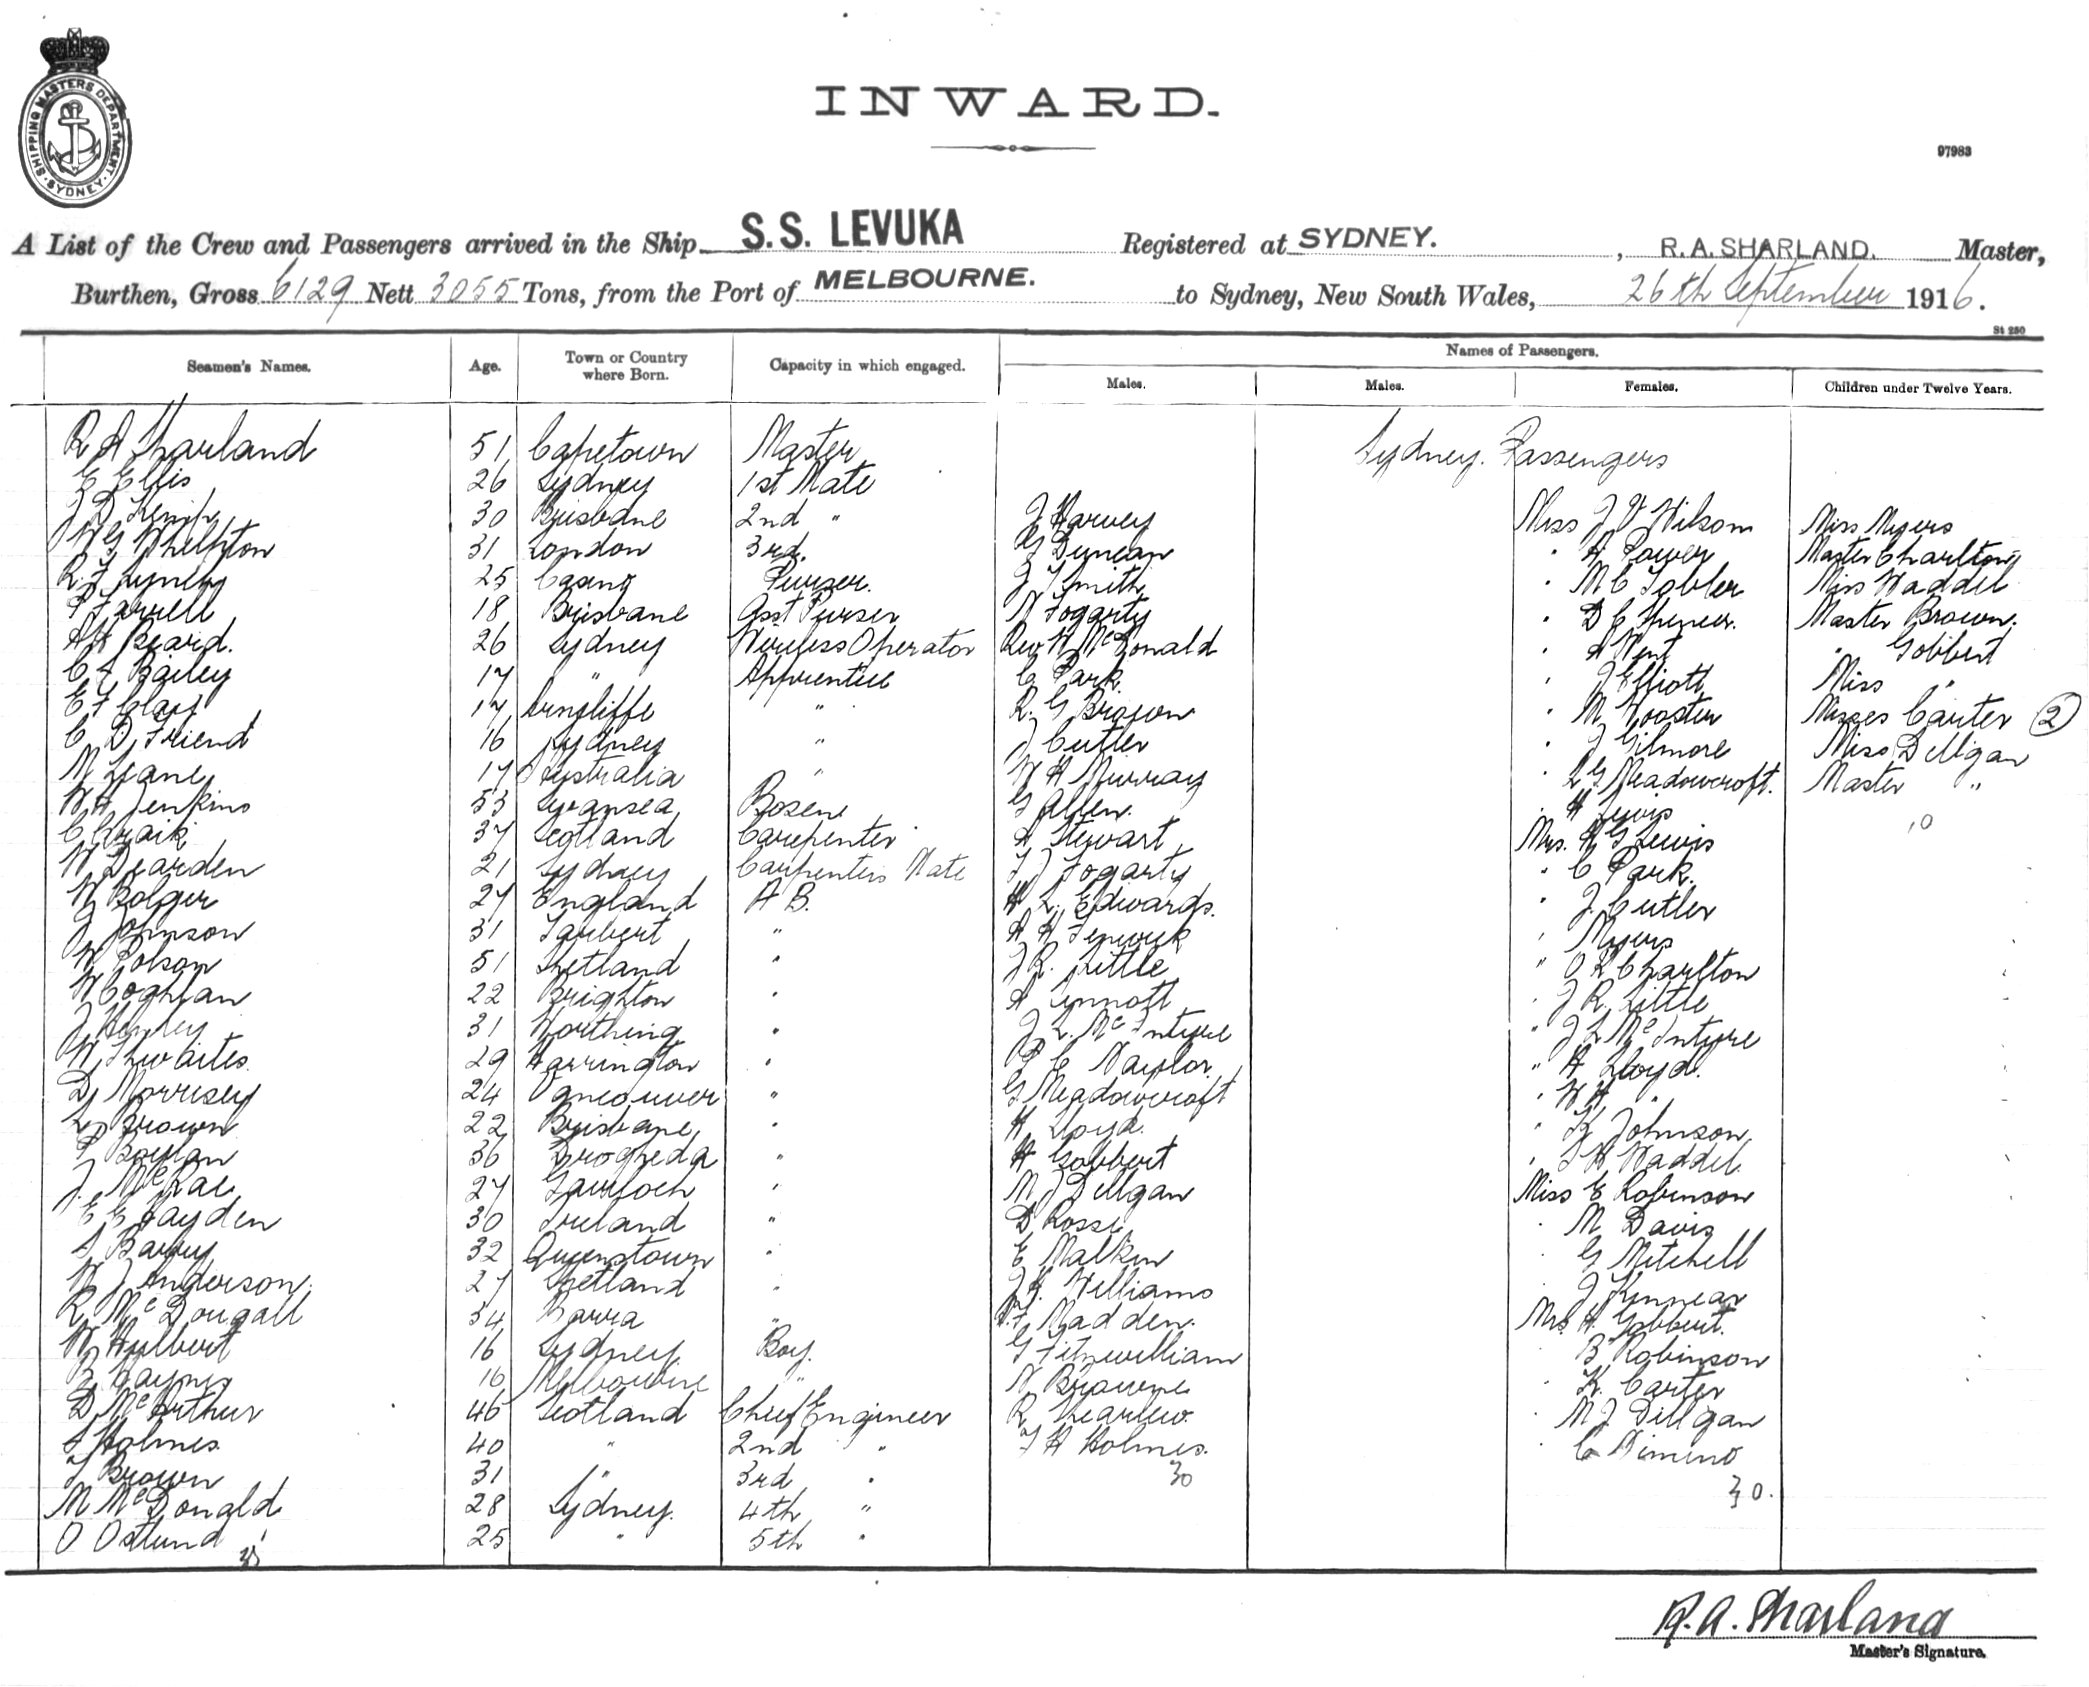 SHIPPING MASTERS DEPARTMENT. SYDNEY.
INWARD.
97983
A List of the Crew and Passengers arrived in the Ship S.S. LEVUKA Registered at SYDNEY. , R.A. SHARLAND. Master,
Burthen, Gross 6129 Nett 3055 Tons, from the Port of MELBOURNE. to Sydney, New South Wales, 26th September 1916.
St 250
Seamen's Names. Age. Town or Country where Born. Capacity in which engaged. Names of Passengers.
Males. Males. Females. Children under Twelve Years.
R A Sharland 51 Capetown Master Sydney Passengers
E Ellis 26 Sydney 1st Mate
J D Kemp 30 Brisbane 2nd " J Harvey Miss J V Wilson Miss Myers
W G Whelpton 31 London 3rd. G Duncan " A Power Master Charlton
R. F Lynch 25 Casino Purser. J T Smith " M C Tobler Miss Waddel
P Farrell 18 Brisbane Asst Purser N Fogarty " D C Spencer. Master Brown.
A H Beard. 26 Sydney Wireless Operator Rev W McDonald " A Went " Gobbert
C A Bailey 17 " Apprentice C Park " J Elliott Miss "
E F Clay 17 Arncliffe " R. G Brown " M Wooster Misses Carter (2)
C D Friend 16 Sydney " J Cutler " J Gilmore Miss Dilligan
M Leane 17 Australia " W A Murray " L G Meadowcroft. Master "
W A Jenkins 53 Swansea Bosen G Allen. " A Lewis 10
C Craik 37 Scotland Carpenter A Stewart Mrs. A G Lewis
W Dearden 21 Sydney Carpenters Mate T J Fogarty " C Park.
W Bolger 27 England A B. A L. Edwards. " J. Cutler
J Johnson 31 Tarbert " A A Fenwick " Myers
W Polson 51 Shetland " J R. Little " O L Charlton
W Coghlan 22 Brighton " A Sinnott " J R Little
J Henley 31 Worthing " J L. McIntyre " J L McIntyre
W Thwaites. 29 Harrington " P C Naylor. " A Lloyd.
D Morrisey 24 Vancouver " G Meadowcroft " W H "
L Brown 22 Brisbane " A Lloyd. " B Johnson
P Boylan 36 Drogheda " A Gobbert " T H Waddel
J. McRae 27 Gairloch " M J Dilligan Miss E Robinson
E G Hayden 30 Ireland " D Rosse " M Davis
A Barry 32 Queenstown " E Malkin " G Mitchell
W J Anderson. 27 Shetland " J G Williams " J Kinnear
R McDougall 34 Barra " Madden. Mrs. A Gobbert.
W Hulbert 16 Sydney. Boy. G Fitzwilliam " B Robinson
B Haynes 16 Melbourne " N Browne " K. Carter
D McArthur 46 Scotland Chief Engineer R Shearlew. " M J Dilligan
A Holmes 40 " 2nd " T H Holmes. " C Nimmo
T Brown 31 " 3rd " 30 30.
M McDonald 28 Sydney. 4th "
O Ostlund 25 " 5th "
35
R. A. Sharland
Master's Signature.